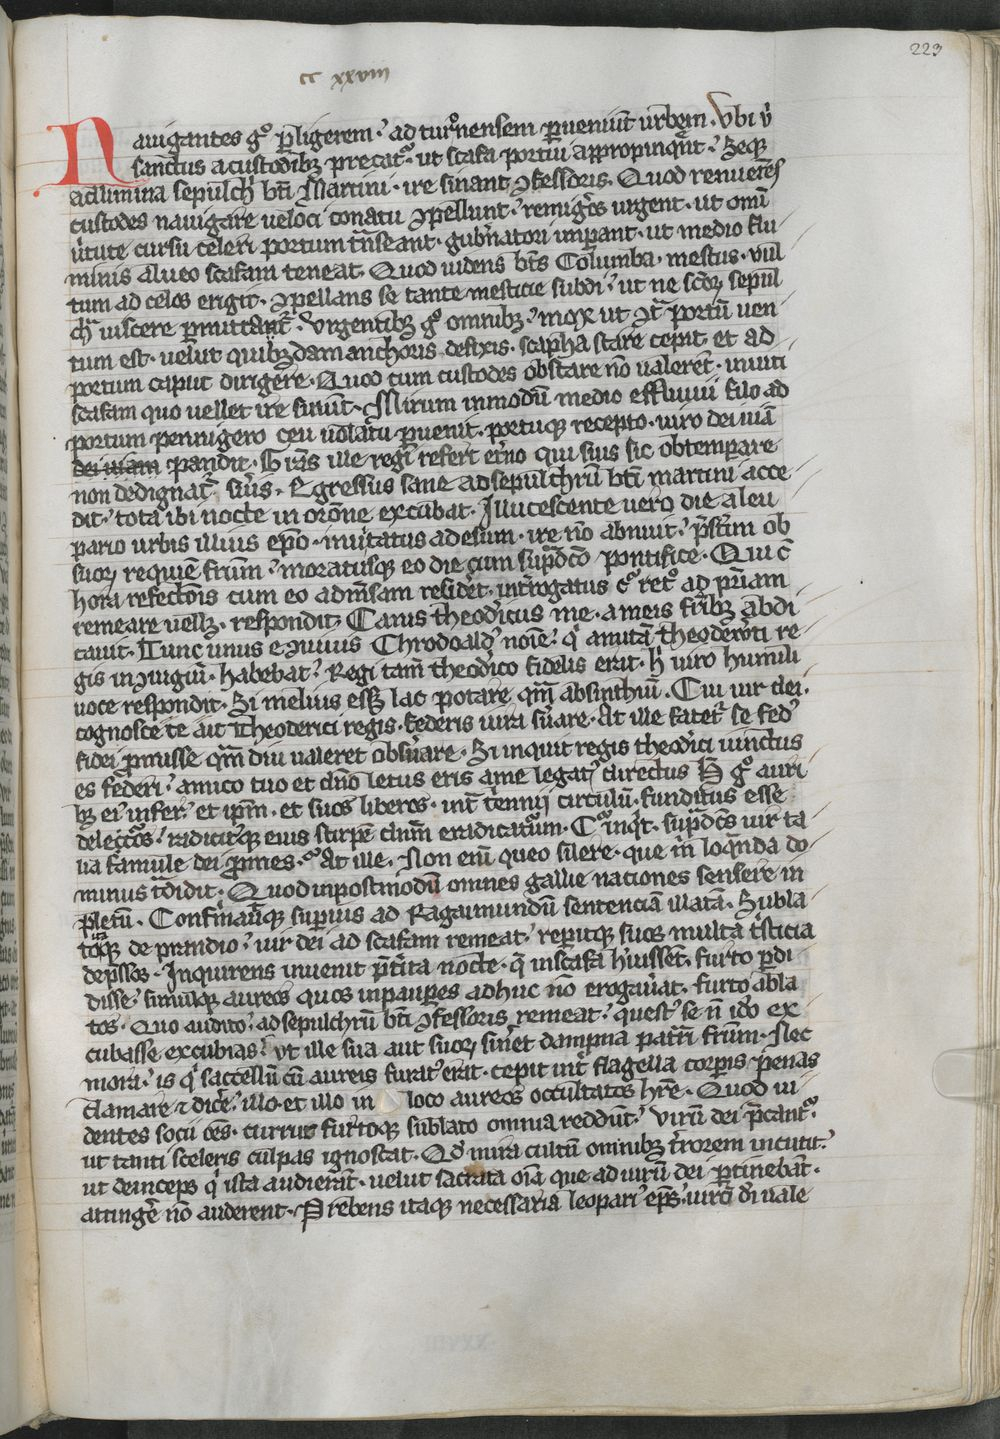 223
cc xxviii
Nauigantes gͦ p̲ligerem · ad turͦnensem p̲ueniūt urbem · Vbi u᷒
sanctus a custodibꝫ precatᷣ · ut scafa portui appropinq̄nt · Seqꝫ
ad lumina sepulcḥ bt̄i Martini · ire sinant ꝯfessoris · Quod renuen̄tes
custodes nauigare ueloci conatu ꝯpellunt · remigᷣes urgent · ut omī
uᷣtute cursu celeri portum tᷓnseant · gub̄natori imp̲ant · ut medio flu
minis alueo scafam teneat · Quod uidens bt̄s Columba · mestus · uul
tum ad celos erigit · ꝯpellans se tante mesticie subdi · ut ne scōꝝ sepul
cḥ uiscere p̲mittantᷣ · Vrgentibꝫ gͦ omnibꝫ · mox ut ꝯtᷓ portū uen
tum est · uelut quibꝫdam anchoris defixis · scapha stare cepit et ad
portum caput dirigere · Quod cum custodes obstare nō ualerēt · inuiti
scafam quo uellet ire sinūt · Mirum inmodū medio effluuii filo ad
portum pennigero ceu uolatu p̲uenit · portuqꝫ recepto · uiro dei uiā
dei uiam pandit · Grās ille regi refert et̄no qui suis sic obtempare
non dedignatᷣ suīs · Egressus sane ad sepulchrū bt̄i martini acce
dit · tota ibi nocte in orōne excubat · Illucescente uero die a leu
pario urbis illius ep̄o · inuitatus ad esum · ire nō abnuit · p̄stim ob
suoꝝ requiē frūm · moratusqꝫ eo die cum sup̲dc̄o pontifice · Qui c̄
hora refectōis cum eo ad mēsam residēt · int̄rogatus cͬ retͦ ad pr̄iam
remeare uellꝫ · respondit · Canis theodicus me · a meis fr̄ibꝫ abdi
cauit · Tunc unus e ꝯuiuis Chrodoaldᷣ noīe · qͥ amitā theodeb̄ti re
gis in ꝯiugiū · habebat · Regi tam̄ theodico fidelis erat · hͥ uiro humili
uoce respondit · Si melius eēꝫ lac potare qm̄ absinthiū · Cui uir dei ·
cognosco te aut Theoderici regis · federis iura s̄uare · At ille fatetᷣ se fedᷣ
fidei p̲misse qm̄ diu ualeret obs̄uare · Si inquit regis theodici iunctus
es federi · amico tuo et dn̄o letus eris a me legatᷣ directus H gͦ auri
bꝫ eiᷣ inferᷣ · et ip̄m · et suos liberos · int̄ t̄ennij circulū · funditus esse
delectos · radicitᷣqꝫ eius stirpē dn̄m eradicaturum · Cͬ inqͥt · sup̲dc̄s uir ta
lia famule dei p̲mes · At ille · Non enī queo silere · que m̄ loq̄nda do
minus tᷓdidit · Quod inpostmodū omnes gallie naciones sensere in
pletū · Confirmauitqꝫ sup̲ius ad Ragaimundū sentenciā illatā · Subla
toqꝫ de prandio · uir dei ad scafam remeat · rep̲itqꝫ suos multa tͥsticia
dep̄ssos · Inquirens inuenit p̄t̄ita nocte · qͥ in scafa hiᷣssent · furto p̲di
disse · simulqꝫ aureos quos in paup̲es adhuc nō erogau̲at · furto abla
tos · Quo audito · ad sepulchrū bt̄i ꝯfessoris remeat · questᷣ se n̄ ido ex
cubasse excubias · ut ille sua aut suoꝝ sin̄et dampna patrͥ frūm · Nec
mora · is qͥ saccellū cū aureis furatᷣ erat · cepit int̄ flagella corp̲is penas
clamare ⁊ dic̄e · illo et illo in loco aureos occultatos hr̄e · Quod ui
dentes socii oēs · currūt furtoqꝫ sublato omnia reddūt · Virū dei p̄cantᷣ ·
ut tanti sceleris culpas ignoscat · Qd̄ mira cultū omnibꝫ t̄rorem incutit ·
ut deinceps qͥ ista audierāt · uelut sacrata oīa que ad uirū dei p̲tinebāt ·
attinge̅ nō auderent · Prebens itaqꝫ necessaria leopariᷣ ep̄s · uiro di uale